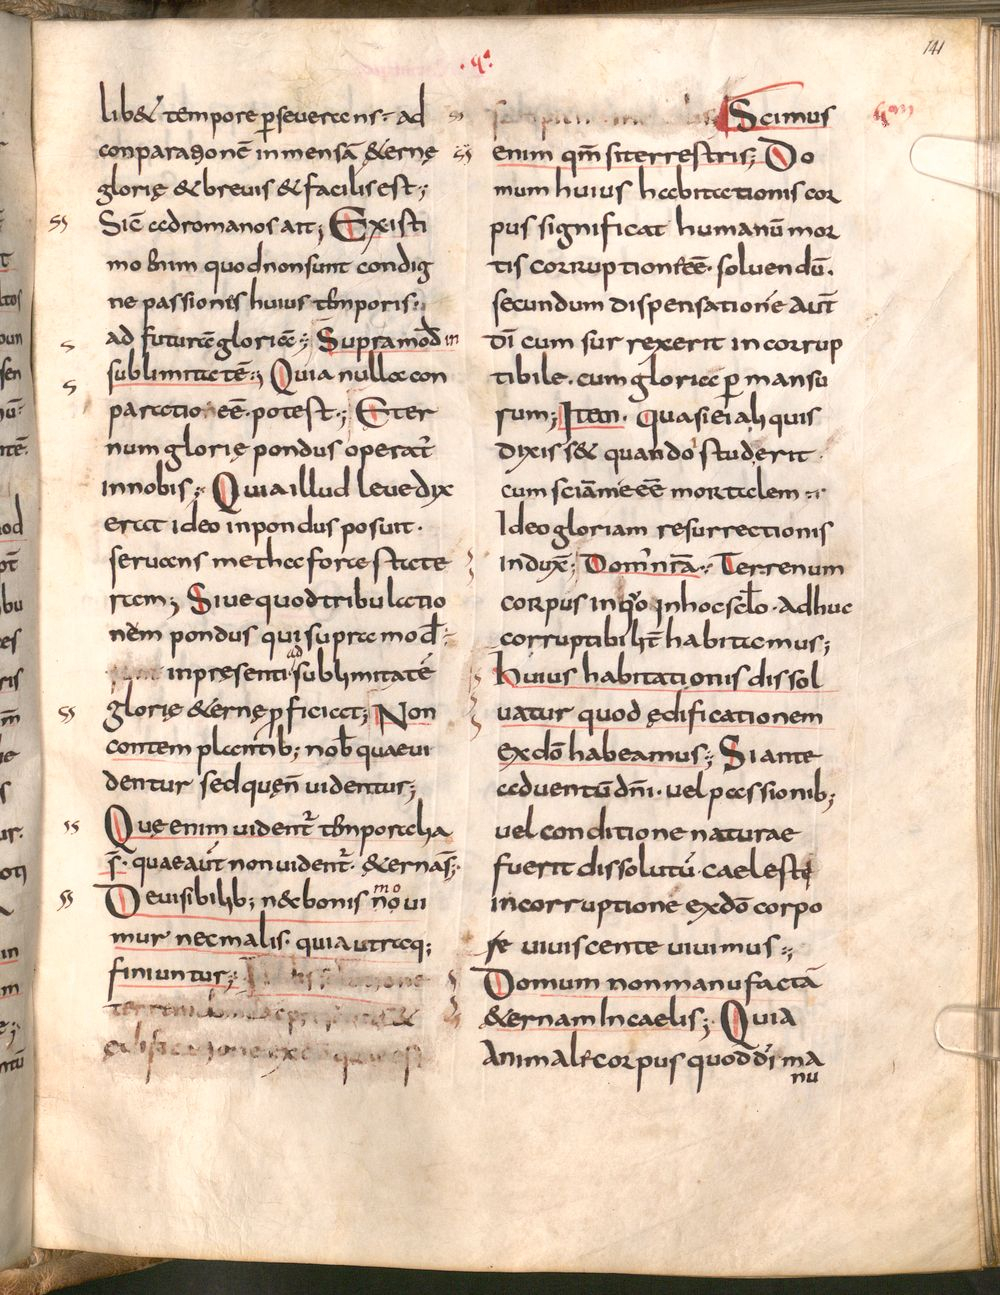 141
· q̄ ·
lib& tempore pseuerans· ad
conparagonē inmensā &ernę
glorię & breuis & facilis est;
Sic̄ adromanos ait; Existi
mo enim quod non sunt condig
ne passiones huius temporis·
ad futurā gloriā; Supramod̄ in
sublimitatē; Quia nulla con
paratio eē· potest; Eter
num glorię pondus operat̄
innobis; Quia illud leue dix
erat ideo inpondus posuit·
seruans metha forastate
ram; Siue quod tribulatio
nem pondus qui supra mod̄
inpresenti ad sublimitatē
glorię &ernę pficiat; Non
contemplantib; nob̄ quae ui
dentur sed quęn̄ uidentur;
Que enim uident̄ temporalia
s̄· quae aut̄ non uident̄· &ernas̄·
De uisibilib; n& bonis no ui
mo
mur nec malis· quia utraq;
finiuntur;
ędificatione exdō quae est
Scimus
enim qm̄ si terrestris; Do
mum huius habitationis cor
pus significat humanū mor
tis corruptione eē· soluendū·
secundum dispensationē aut̄
dī cum surrexerit incorrup
tibile· cum gloria p mansu
rum; Item· quasi ei aliquis
dixiss& quando studerit·
cum sciā me eē mortalem
Ideo gloriam resurrectionis
indux̄; Dom̄ nrā· Terrenum
corpus inquo inhoc sc̄lo· adhuc
corruptibilit̄ habitamus;
huius habitationis dissol
uatur quod ędificationem
exdō habeamus; Si ante
aduentū dn̄i· uel passionib;
uel conditione naturae
fuerit dissolutū· caeleste
incorruptione exdō corpo
re uiuiscente uiuimus;
Domum non manufactā
&ernam In caelis; Quia
animale corpus quod dī ma
nu